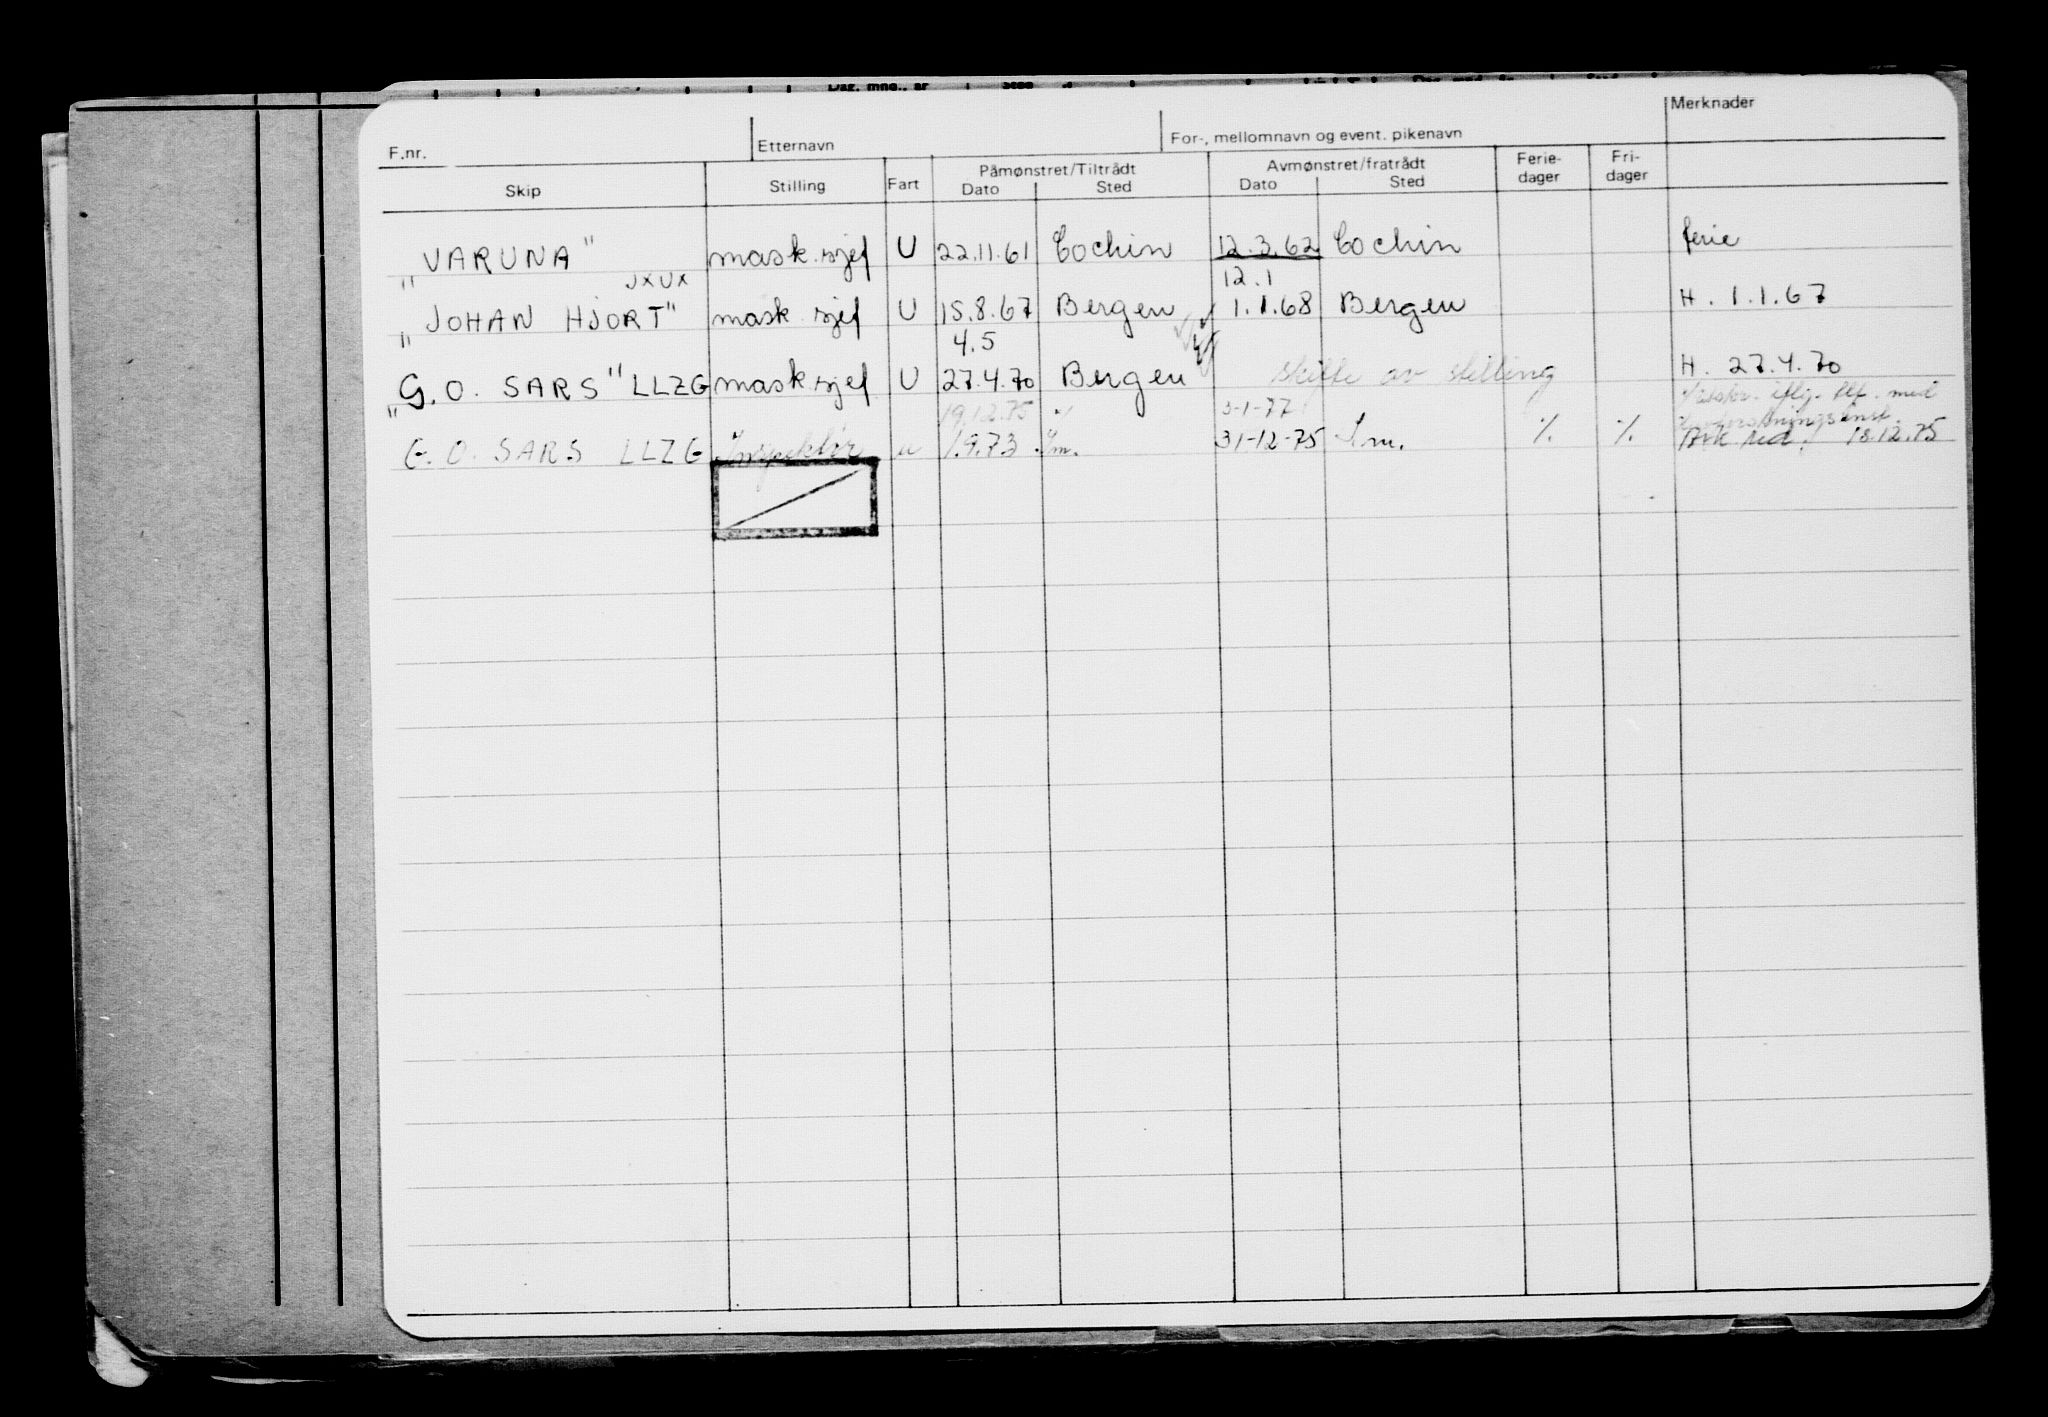 Merknader
F.nr. Etternavn For-, mellomnavn og event. pikenavn
Påmønstret/Tiltrådt Avmønstret/fratrådt Ferie- Fri-
Skip Stilling Fart Dato Sted Dato Sted dager dager
"VARUNA" mask.sjef U 22.11.61 Cochin 12.3.62 Cochin ferie
JXUX 12.1
"JOHAN HJORT" mask sjef U 15.8.67 Bergen 1.1.68 Bergen H. 1.1.67
4.5
"G.O. SARS" LLZG mask sjef U 27.4.70 Bergen skifte av stilling H. 27.4.70
19.12.75 % 3-1-77 tlf. med
G.O. SARS LLZG Inspektør u 1.9.73 Sm. 31-12-75 S.m. % % 18.12.75